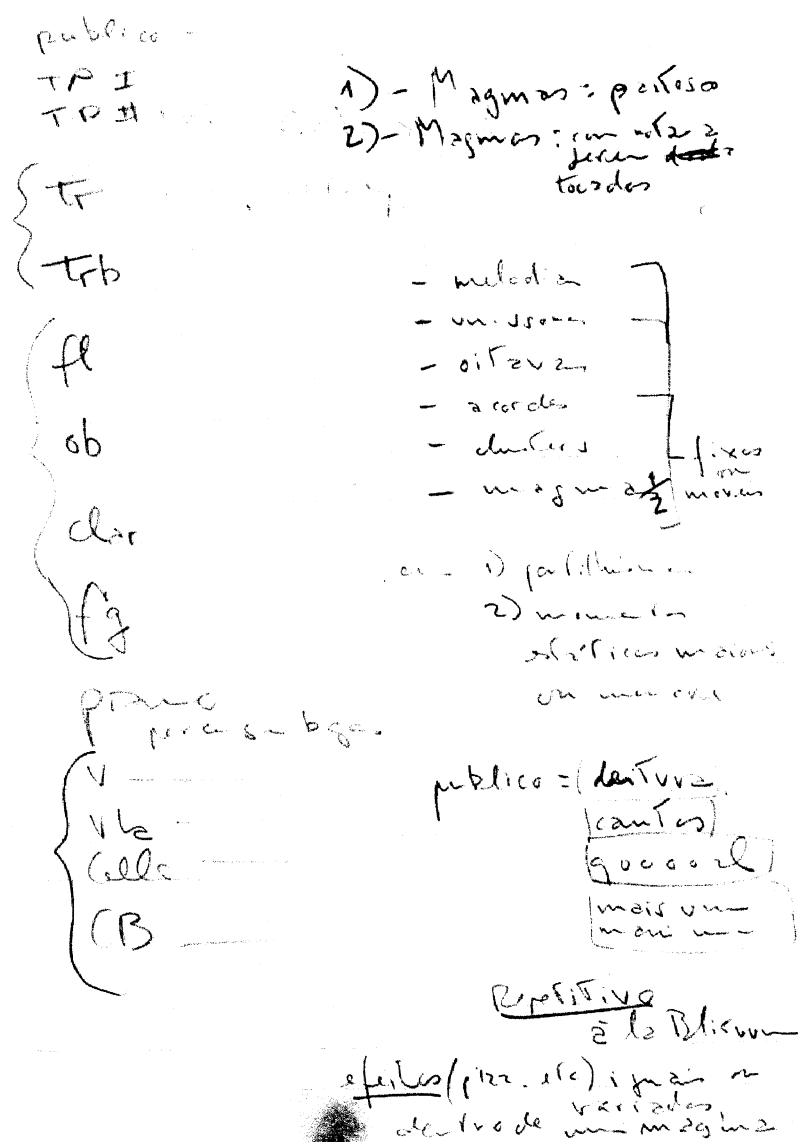 publico -
TP I
TP II
tr
Trb
fl
ob
clar
fg
piano
V
Vla
Cello
CB
1) - Magmas:
2) - Magmas: com notas a
serem
tocadas
- melodias
- unissonos
- oitavas
- acordes
- clusters
- magma 1/2
fixos
ou
moveis
1)
2) momentos
estáticos maiores
ou menores
publico = leitura
cantos
gooool
mais um
mais um
Repetitivo
à la
efeitos (pizz. etc) iguais ou
variados
dentro de um magma